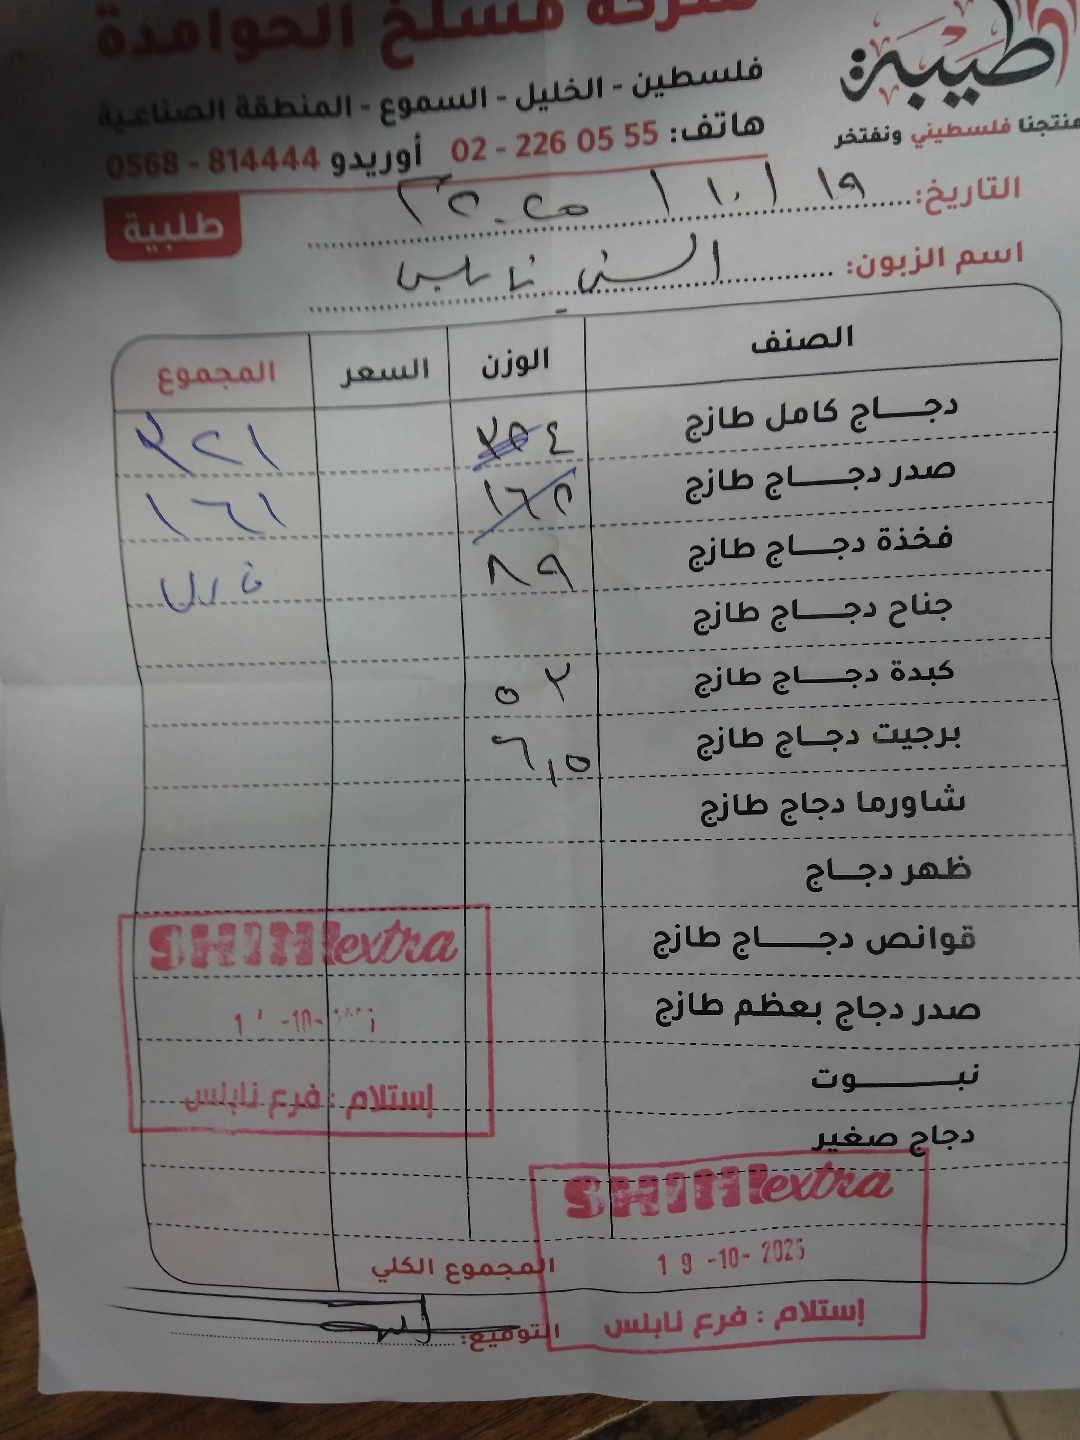 شركة مسلخ الحوامدة
طيبة
منتجنا فلسطيني ونفتخر
فلسطين - الخليل - السموع - المنطقة الصناعية
هاتف: 02 - 226 05 55 أوريدو 0568 - 814444
طلبية
التاريخ: ١٩ / ١٠ /
اسم الزبون: الشني نابلس
الصنف الوزن السعر المجموع
دجاج كامل طازج ٢٢١
صدر دجاج طازج ١٦٥ ١٦١
فخذة دجاج طازج ٨٩ فارس
جناح دجاج طازج
كبدة دجاج طازج ٥٢
برجيت دجاج طازج ٦,٥
شاورما دجاج طازج
ظهر دجاج
قوانص دجاج طازج
صدر دجاج بعظم طازج
نبوت
دجاج صغير
SHINI extra
إستلام : فرع نابلس
SHINI extra
19 -10- 2025
إستلام : فرع نابلس
المجموع الكلي
التوقيع: